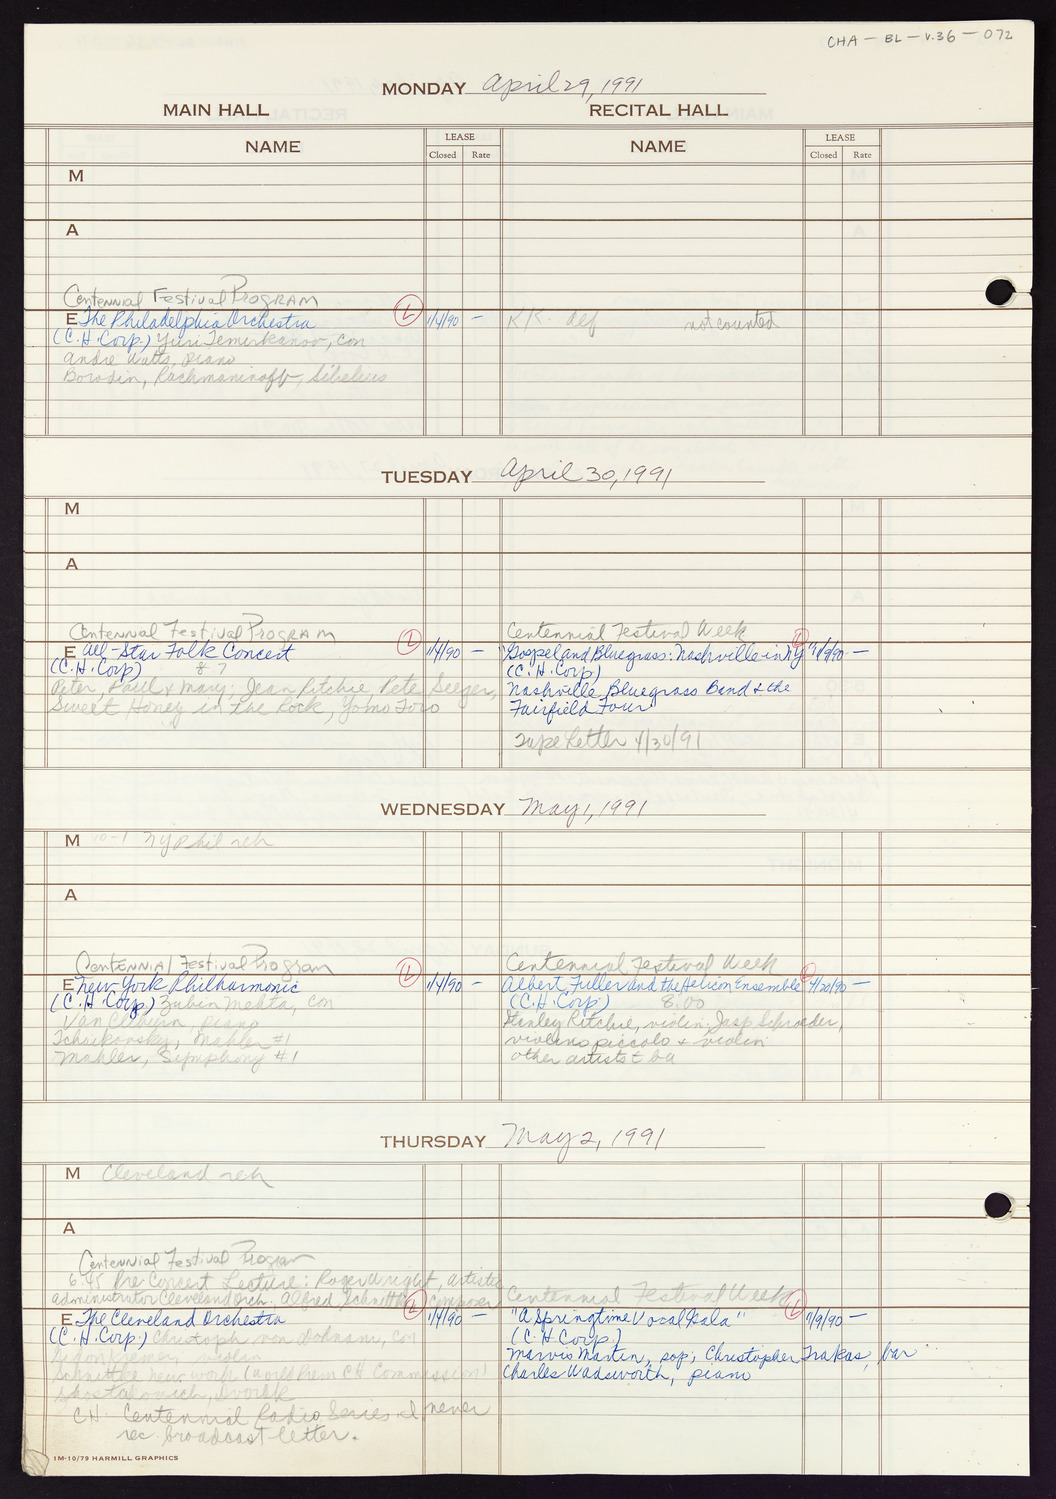 CHA - BL - v.36 - 072
MONDAY April 29, 1991
MAIN HALL RECITAL HALL
NAME LEASE NAME LEASE
Closed Rate Closed Rate
M
A
Centennial Festival PROGRAM
E The Philadelphia Orchestra L 1/4/90 — K/K. def not counted
(C.H. Corp.) Yuri Temirkanov, con
Andre Watts, piano
Borodin, Rachmaninoff, Sibelius
TUESDAY April 30, 1991
M
A
Centennial Festival PROGRAM Centennial Festival Week
E All-Star Folk Concert L 1/4/90 — "Gospel and Bluegrass: Nashville in NY" L 1/9/90 —
(C.H. Corp) 87 (C.H. Corp)
Peter, Paul & Mary; Jean Ritchie, Pete Seeger, Nashville Bluegrass Band & the
Sweet Honey in the Rock, Yomo Toro Fairfield Four"
Tape Letter 4/30/91
WEDNESDAY May 1, 1991
M 10-1 NY Phil reh
A
Centennial Festival Program Centennial Festival Week
E New York Philharmonic L 1/4/90 — Albert Fuller and the Helicon Ensemble L 4/20/90 —
(C.H. Corp.) Zubin Mehta, con (C.H. Corp) 8:00
Van Cliburn piano Stanley Ritchie, violin; Jaap Schroeder,
Tchaikovsky, Mahler #1 violino piccolo & violin
Mahler, Symphony #1 other artists
THURSDAY May 2, 1991
M Cleveland reh
A
Centennial Festival Program
6:45 Pre Concert Lecture: Roger Wright, artistic
administrator Cleveland Orch. Alfred Schnittke composer Centennial Festival Week
E The Cleveland Orchestra L 1/4/90 — "A Springtime Vocal Gala" L 1/9/90 —
(C.H. Corp.) Christoph von Dohnanyi, con (C.H. Corp.)
Gidon Kremer, violin Marvis Martin, sop; Christopher Trakas, bar
Schnittke new work (world prem CH Commission) Charles Wadsworth, piano
Shostakovich, Dvorak
CH. Centennial Radio Series I never
rec. broadcast letter.
1M-10/79 HARMILL GRAPHICS